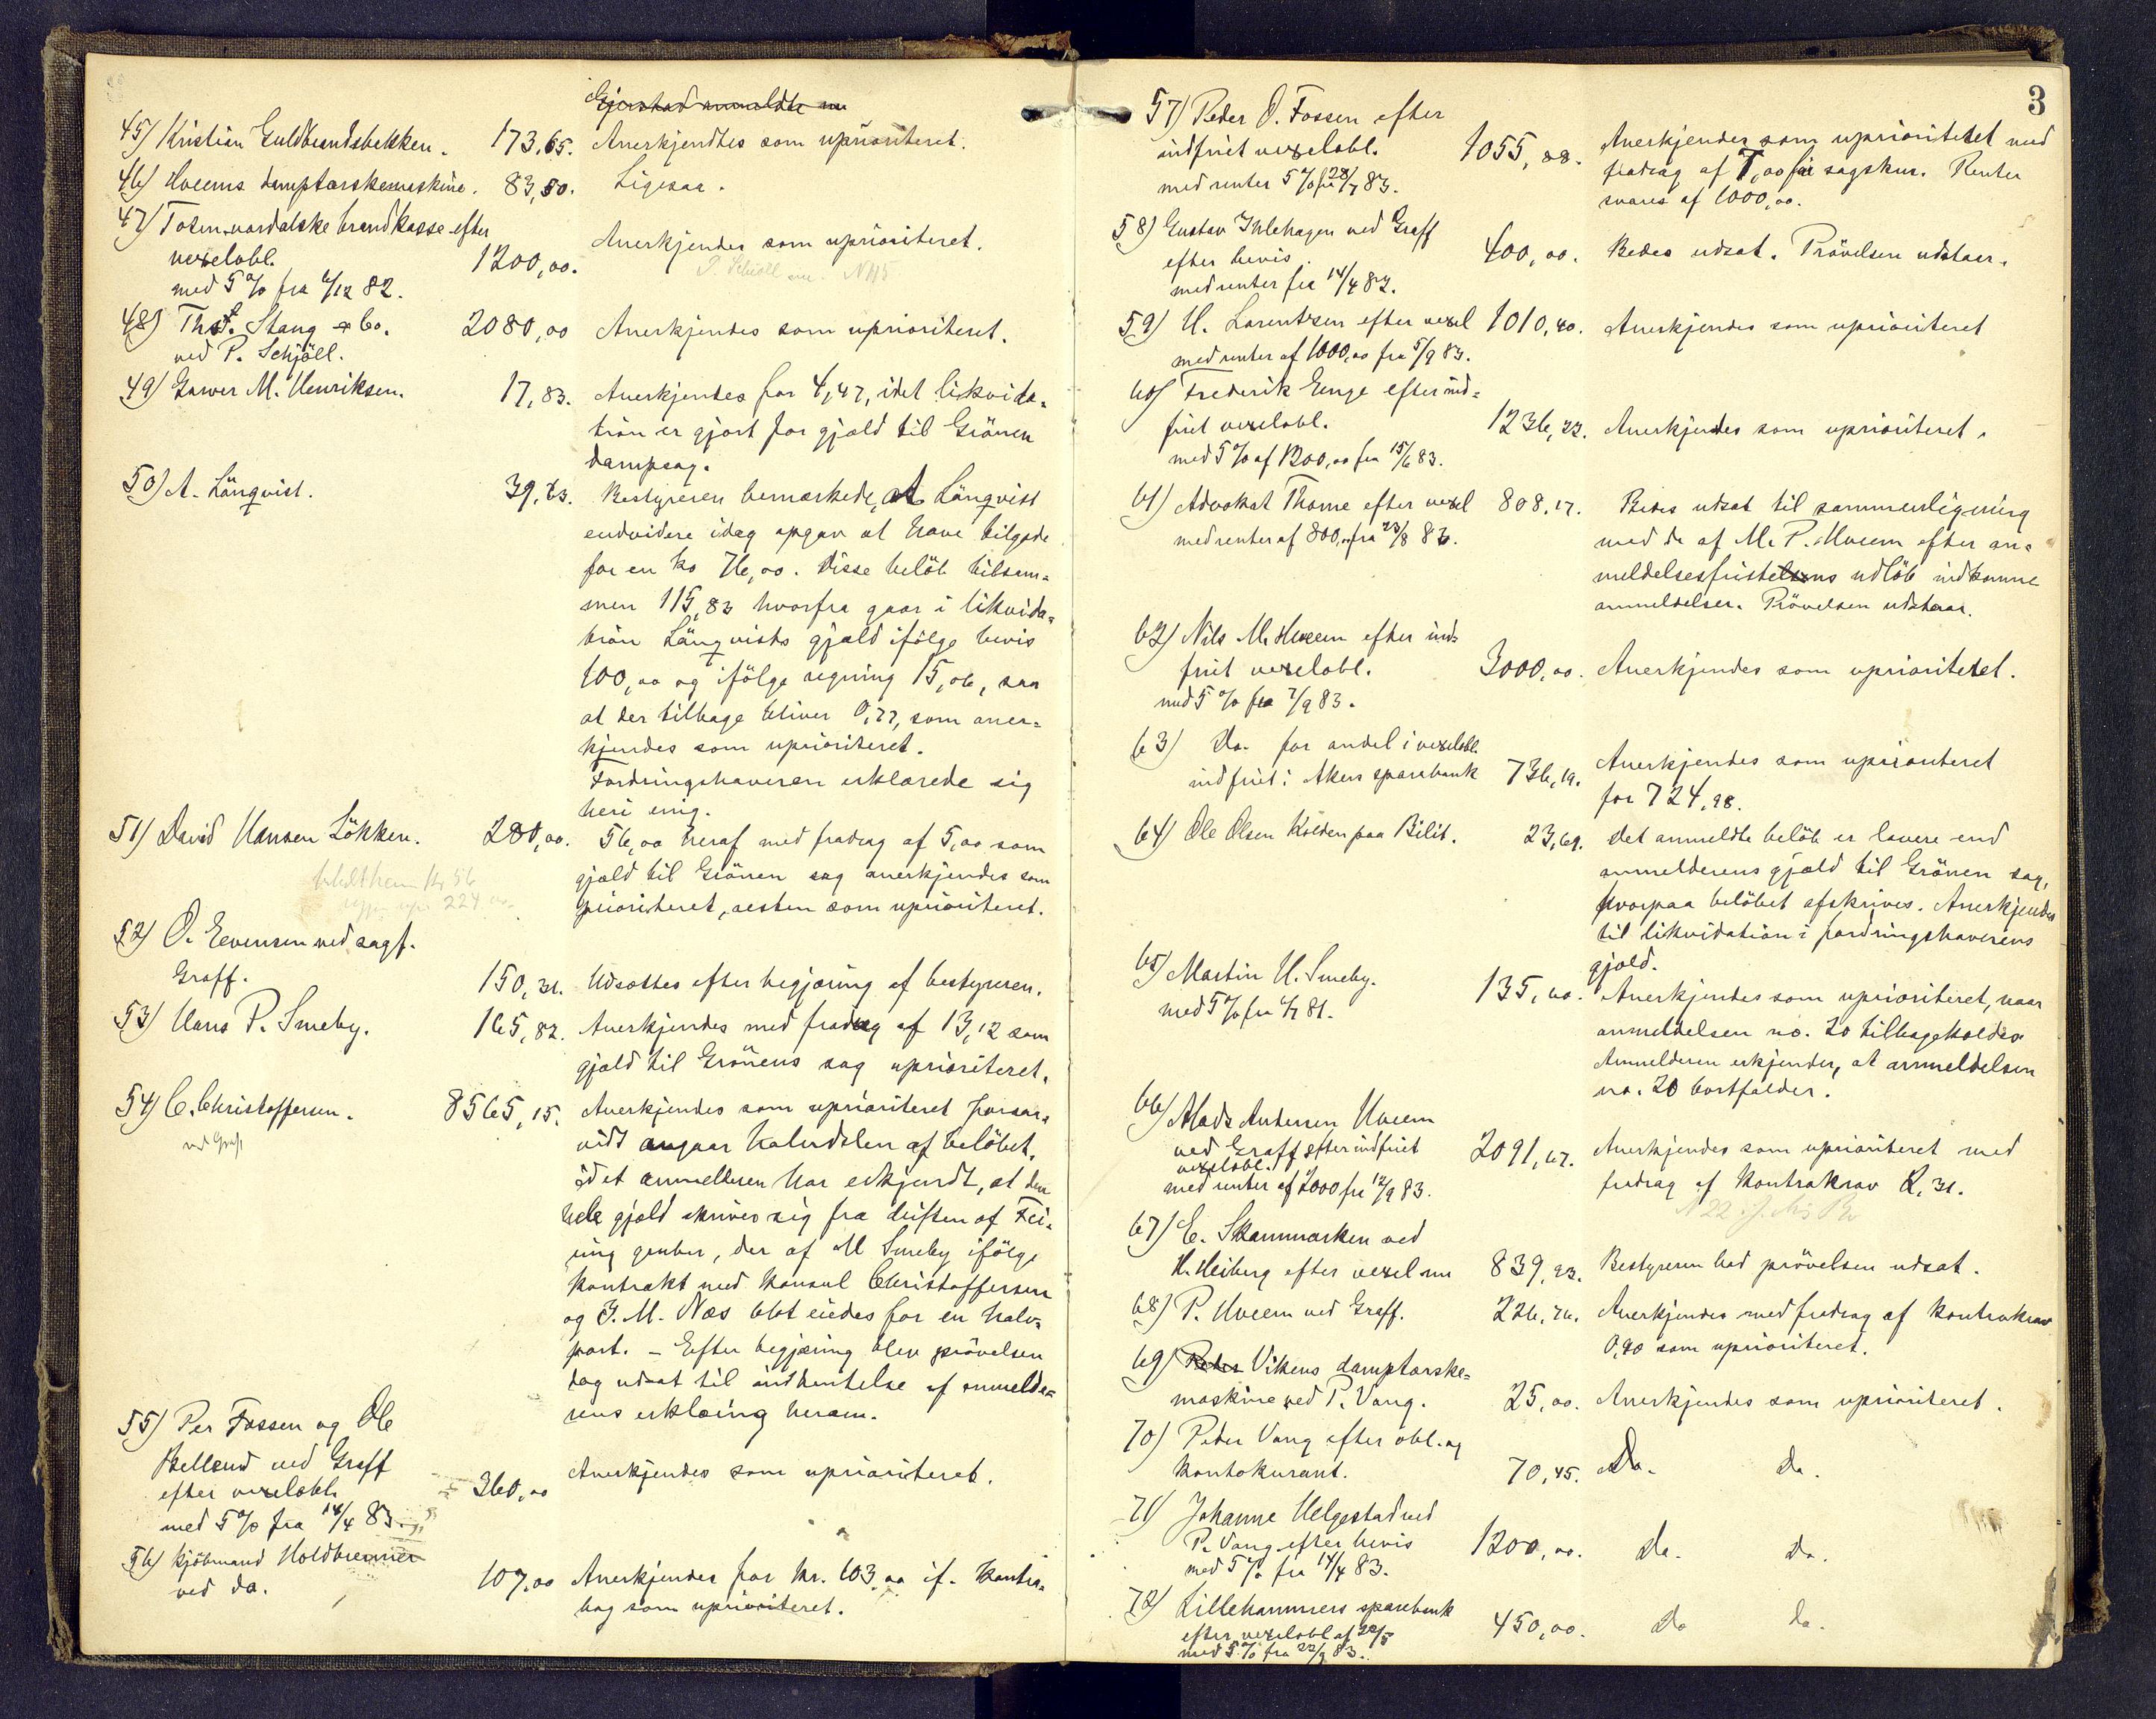 45) Kristian Guldbrandsbakken. 173,65. Anerkjendtes som uprioriteret.
46) Hveems damptærskemaskine. 83,50. Ligesaa.
47) Toten-vardalske brandkasse efter
vexelobl. 1200,00. Anerkjendes som uprioriteret.
med 5 % fra 6/12 82.
48) Ths. Stang & Co. 2080,00 Anerkjendes som uprioriteret.
ved P. Schjöll.
49) Garver M. Henriksen. 17,83. Anerkjendes for 4,47, idet likvida=
tion er gjort for gjæld til Grönen
dampsag.
50) A. Lönqvist. 39,83. Bestyreren bemærkede, at Lönqvist
endvidere idag opgav at have tilgode
for en ko 76,00. Disse belöb tilsam=
men 115,83 hvorfra gaar i likvida=
tion Lönqvists gjæld ifölge bevis
100,00 og ifölge regning 15,06, saa
at der tilbage bliver 0,77, som aner=
kjendes som uprioriteret.
Fordringshaveren erklærede sig
heri enig.
51) David Hansen Lökken. 280,00. 56,00 heraf med fradrag af 5,00 som
gjæld til Grönen sag anerkjendes som
prioriteret, resten som uprioriteret.
52) O. Evensen ved sagf.
Graff. 150,31. Udsættes efter begjæring af bestyreren.
53) Hans P. Smeby. 165,82. Anerkjendes med fradrag af 13,12 som
gjæld til Grönens sag uprioriteret.
54) C. Christoffersen. 8565,15. Anerkjendes som uprioriteret forsaa=
ved Graff
vidt angaar halvdelen af belöbet,
idet anmelderen har erkjendt, at den
hele gjæld skriver sig fra driften af Fei=
ring gruber, der af M Smeby ifölge
kontrakt med konsul Christoffersen
og J. M. Næs blot eiedes for en halv=
part. - Efter begjæring blev prövelsen
dog udsat til indhentelse af anmelde=
rens erklæring herom.
55) Per Fossen og Ole
Bellerud ved Graff
efter vexelobl. 360,00 Anerkjendes som uprioriteret.
med 5 % fra 14/4 83.
56) Kjöbmand Holdbrenner
ved do. 107,00 Anerkjendes for kr. 103,00 if. kontra=
bog som uprioriteret.
3
57) Peder O. Fossen efter
indfriet vexelobl. 1055,88. Anerkjendes som uprioriteret med
med renter 5 % fra 28/7 83. fradrag af 7,00 for sagskur. Renter
svares af 1000,00.
58) Gustav Ihlehagen ved Graff
efter bevis. 400,00. Bedes udsat. Prövelsen udstaar.
med renter fra 14/4 82.
59) H. Larentzen efter vexel 1010,40. Anerkjendes som uprioriteret
med renter af 1000,00 fra 5/9 83.
60) Frederik Enge efter ind=
friet vexelobl. 1236,33. Anerkjendes som uprioriteret.
med 5 % af 1200,00 fra 15/6 83.
61) Advokat Thome efter vexel 808,17. Bedes udsat til sammenligning
med renter af 800,00 fra 23/8 83. med de af M. P. Hveem efter an=
meldelsesfristens udlöb indkomne
anmeldelser. Prövelsen udstaar.
62) Nils M. Hveem efter ind=
friet vexelobl. 3000,00. Anerkjendes som uprioriteret.
med 5 % fra 7/9 83.
63) Do. for andel i vexelobl.
indfriet i Akers sparebank 736,19. Anerkjendes som uprioriteret
for 724,98.
64) Ole Olsen Kolden paa Bilit. 23,69. Det anmeldte belöb er lavere end
anmelderens gjæld til Grönen sag,
hvorpaa belöbet afskrives. Anerkjendes
til likvidation i fordringshaverens
gjæld.
65) Martin H. Smeby. 135,60. Anerkjendes som uprioriteret, naar
anmeldelsen no. 20 tilbageholdes.
Anmelderen erkjender, at anmeldelsen
no. 20 bortfalder.
66) Mads Andersen Hveem
ved Graff efter indfriet
vexelobl. 2091,67. Anerkjendes som uprioriteret med
med renter af 2000 fra 12/9 83. fradrag af kontrakrav 2,31.
67) E. Skammarken ved
H. Heiberg efter vexel 839,93. Bestyreren bad prövelsen udsat.
68) P. Hveem ved Graff. 226,76. Anerkjendes med fradrag af kontrakrav
0,90 som uprioriteret.
69) Vikens damptærske=
maskine ved P. Vang. 25,00. Anerkjendes som uprioriteret.
70) Peder Vang efter obl. og
kontokurant. 70,45. Do. do.
71) Johanne Helgestad ved
P. Vang efter bevis 1200,00. Do. do.
med 5 % fra 14/4 83.
72) Lillehammers sparebank
efter vexelobl af 22/5 450,00. Do do.
med 5 % fra 22/9 83.